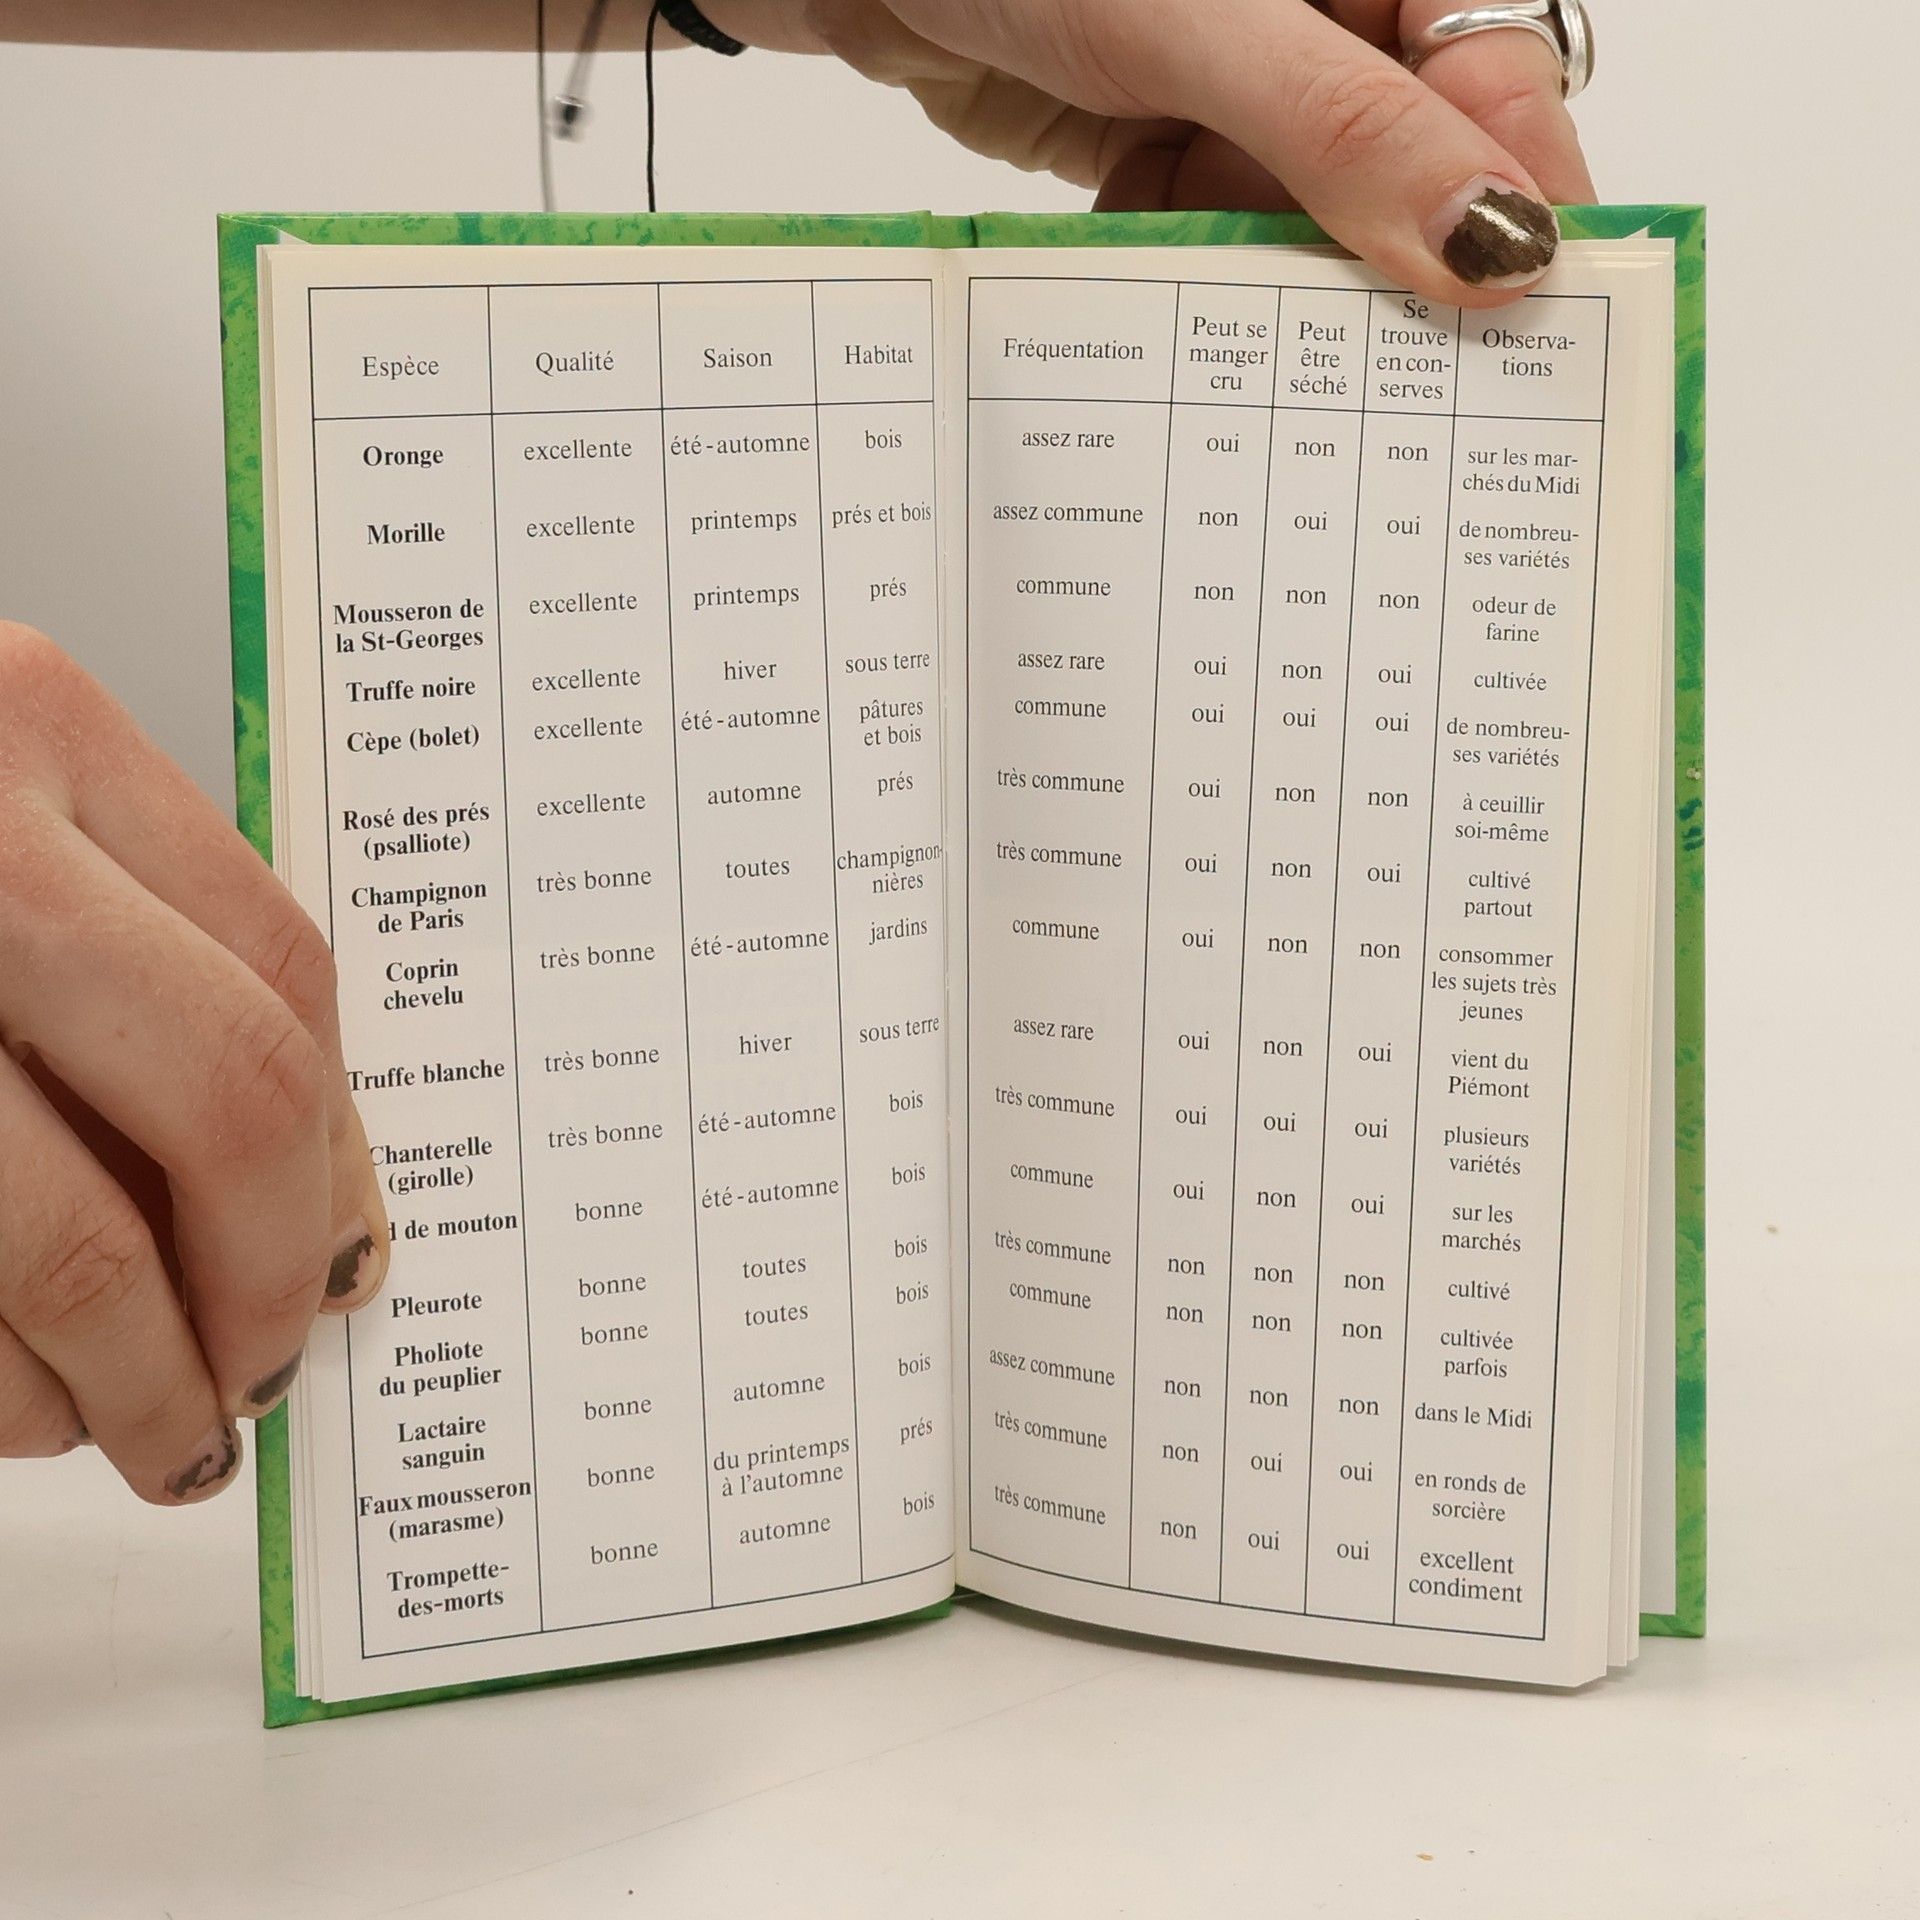 Espèce Qualité Saison Habitat Fréquentation Peut se manger cru Peut être séché Se trouve en con- serves Observa- tions
Oronge excellente été-automne bois assez rare oui non non sur les mar-
chés du Midi
Morille excellente printemps prés et bois assez commune non oui oui de nombreu-
ses variétés
Mousseron de excellente printemps prés commune non non non odeur de
la St-Georges farine
Truffe noire excellente hiver sous terre assez rare oui non oui cultivée
Cèpe (bolet) excellente été-automne pâtures commune oui oui oui de nombreu-
et bois ses variétés
Rosé des prés excellente automne prés très commune oui non non à ceuillir
(psalliote) soi-même
Champignon très bonne toutes champignon- très commune oui non oui cultivé
de Paris nières partout
Coprin très bonne été-automne jardins commune oui non non consommer
chevelu les sujets très
jeunes
Truffe blanche très bonne hiver sous terre assez rare oui non oui vient du
Piémont
Chanterelle très bonne été-automne bois très commune oui oui oui plusieurs
(girolle) variétés
de mouton bonne été-automne bois commune oui non oui sur les
marchés
Pleurote bonne toutes bois très commune non non non cultivé
Pholiote bonne toutes bois commune non non non cultivée
du peuplier parfois
Lactaire bonne automne bois assez commune non non non dans le Midi
sanguin
Faux mousseron bonne du printemps prés très commune non oui oui en ronds de
(marasme) à l'automne sorcière
Trompette- bonne automne bois très commune non oui oui excellent
des-morts condiment